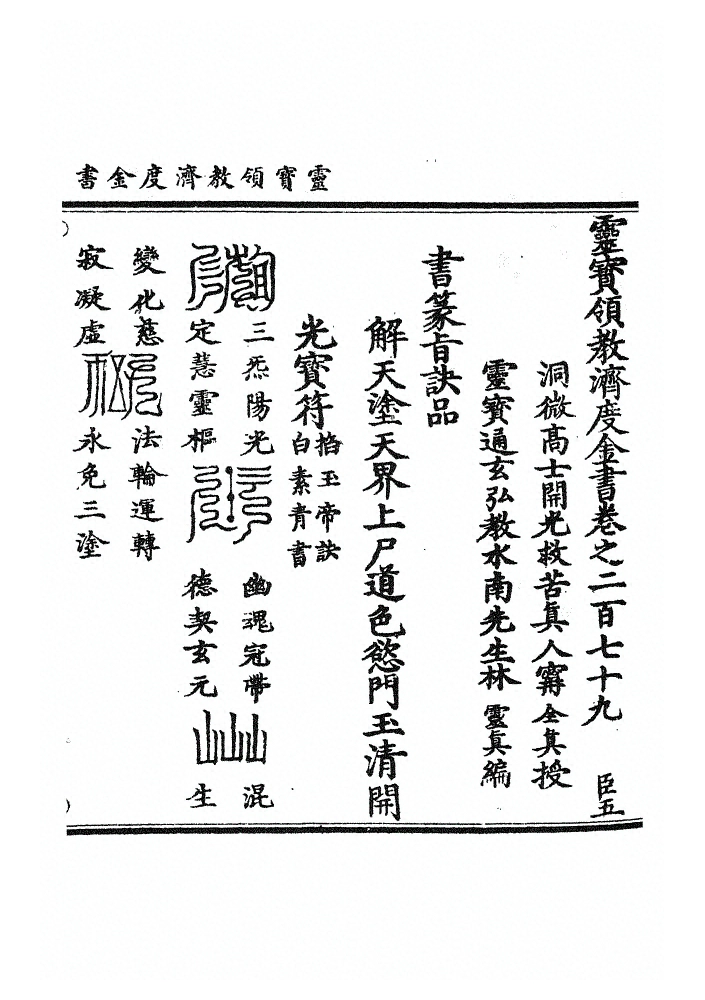 靈寶領教濟度金書
靈寶領教濟度金書卷之二百七十九 臣五
洞微高士開光救苦真人甯全真授
靈寶通玄弘教水南先生林靈真編
書篆旨訣品
解天塗天界上尸道色慾門玉清開
光寶符 掐玉帝訣
白素青書
三炁陽光 幽魂冠帶 混
定慧靈樞 德契玄元 生
變化慈 法輪運轉
寂凝虛 永免三塗